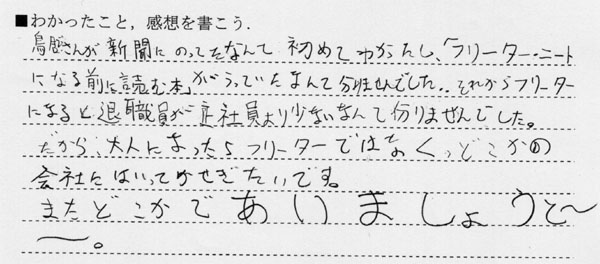 ■わかったこと，感想を書こう．
鳥居さんが新聞にのってたなんて初めてわかたし、「フリーター・ニート
になる前に読む本」がうっていたなんて分りませんでした。それからフリーター
になると退職員が正社員より少ないなんて分りませんでした。
だから、大人になったらフリーターではなく、どこかの
会社にはいってかせぎたいです。
またどこかであいましょうと〜
〜。